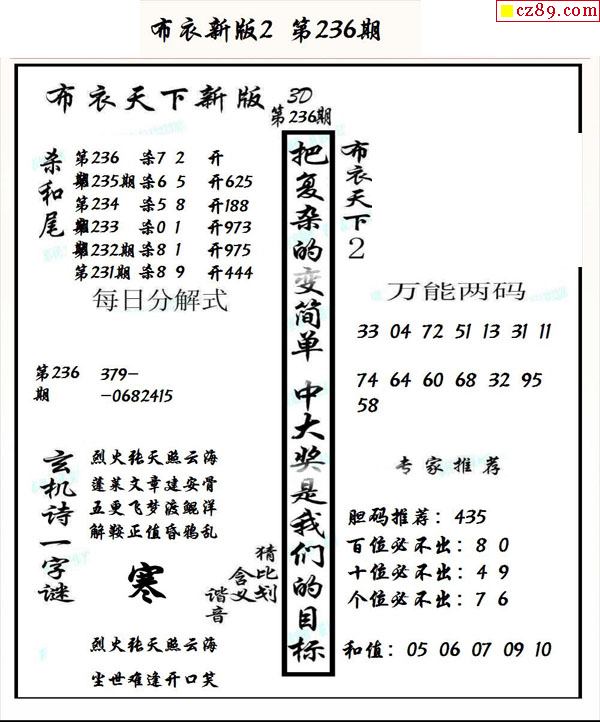 cz89.com
布衣新版2 第236期
布衣天下新版
3D
第236期
杀和尾
第236 杀7 2 开
期
第235期 杀6 5 开625
第234 杀5 8 开188
期
第233 杀0 1 开973
第232期 杀8 1 开975
第231期 杀8 9 开444
每日分解式
第236期 379-
-0682415
玄机诗一字谜
烈火张天照云海
蓬莱文章建安骨
五更飞梦渡鲲洋
解鞍正值昏鸦乱
寒
猜比划
含义
谐音
烈火张天照云海
尘世难逢开口笑
把复杂的变简单 中大奖是我们的目标
布衣天下2
万能两码
33 04 72 51 13 31 11
74 64 60 68 32 95
58
专家推荐
胆码推荐: 435
百位必不出: 8 0
十位必不出: 4 9
个位必不出: 7 6
和值: 05 06 07 09 10